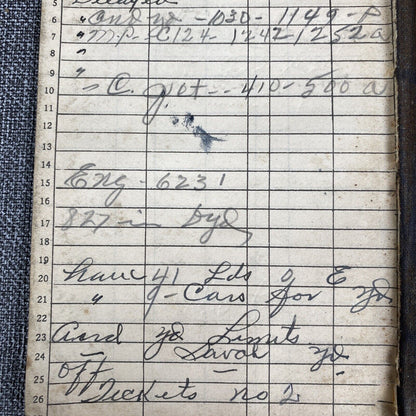 5 Delayed
6 " Cnd yd - 1030 - 1149 - P
7 " M.P. - C124 - 1242 1252 a
8 "
9 "
10 " C. Jct - - 410 - 500 a
11 "
12
13
14
15 Eng - 6231
16
17 827 in Dyd
18
19
20 have 41 Lds g E
21 " 9 - Cars for yd
22
23 and yd Limits
24 yd
25 off
26 Tickets no 2